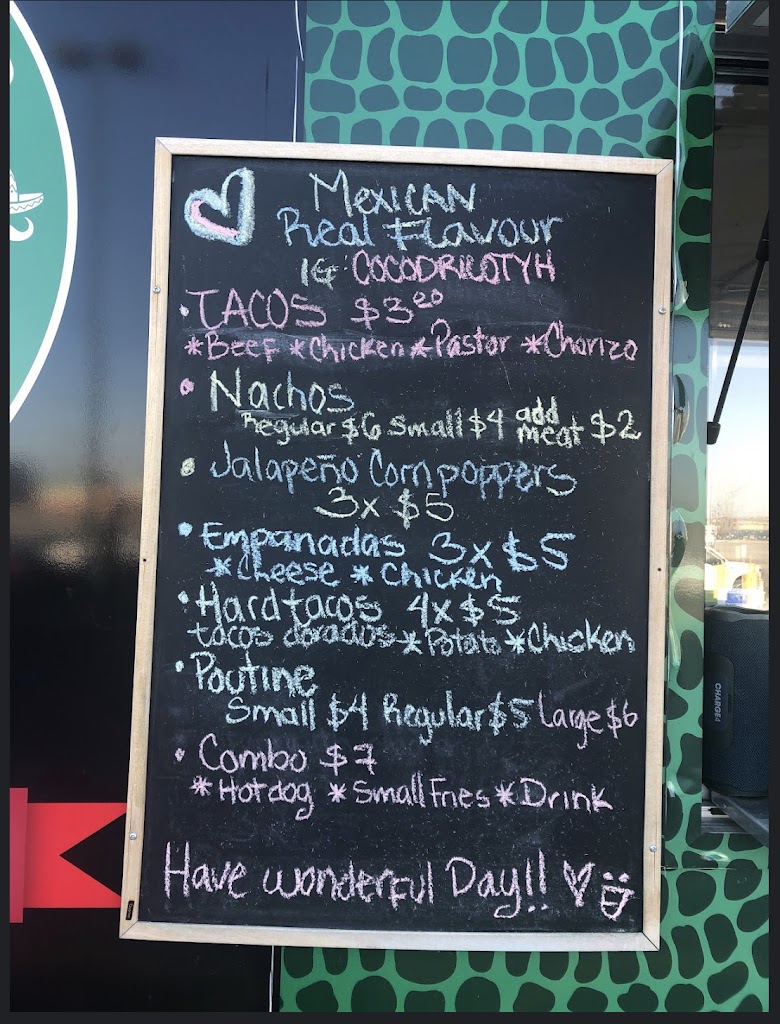 MEXICAN
Real Flavour
IG COCODRILOTYH
• TACOS $3.00
*Beef *Chicken *Pastor *Chorizo
• Nachos
Regular $6 Small $4 add meat $2
• Jalapeño Corn poppers
3x $5
• Empanadas 3x $5
*Cheese *Chicken
• Hard tacos 4x $5
tacos dorados *Potato *Chicken
• Poutine
Small $4 Regular $5 Large $6
• Combo $7
*Hotdog *Small Fries *Drink
Have wonderful Day!!
CHARGE4